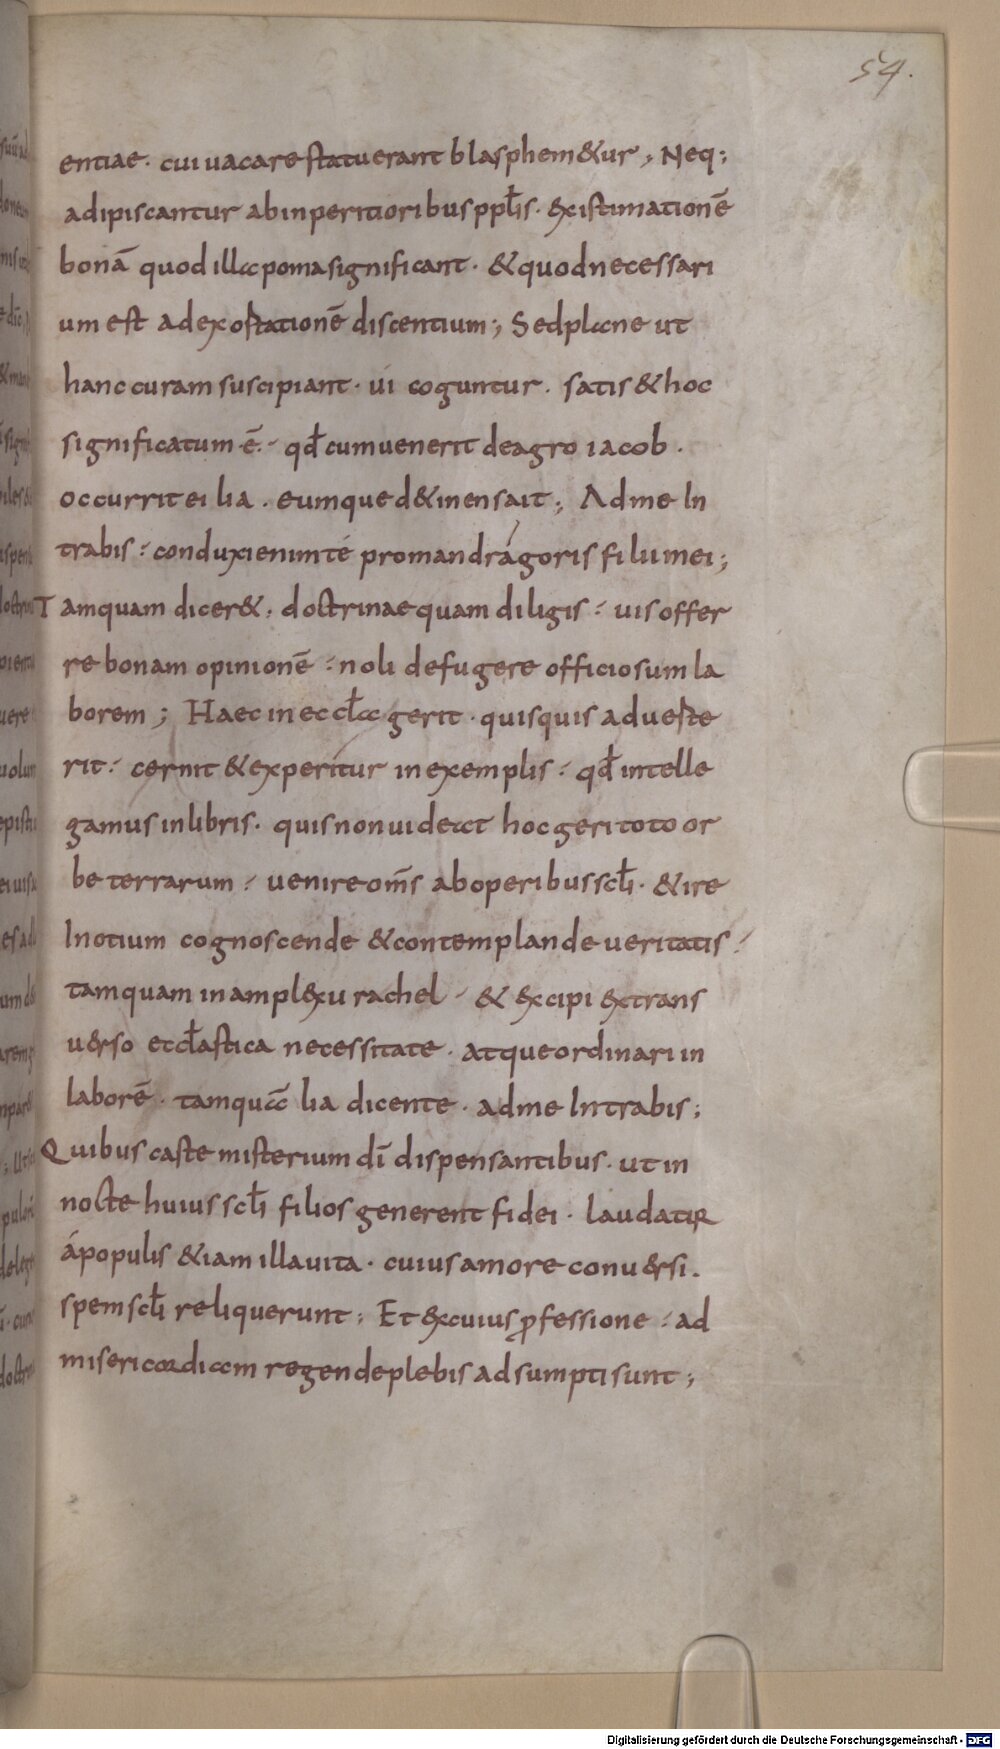 54.
entiae. cui uacare statuerant blasphem&ur; Neq;
adipiscantur ab inperitioribus ppłis. &xistimationē
bonā quod illa poma significant. & quod necessari
um est ad exostationē discentium; Sed plane ut
hanc curam suscipiant. ui coguntur. satis & hoc
significatum ē. qđ cum uenerit de agro iacob.
occurrit ei lia. eumque d&inens ait; Ad me In
trabis: conduxi enim té pro mandrágoris filii mei;
Tamquam dicer&. doctrinae quam diligis: uis offer
re bonam opinionē: noli defugere officiosum la
borem; Haec in eccła gerit. quisquis aduerte
rit: cernit & experitur in exemplis: qđ intelle
gamus in libris. quis non uideat hoc geri toto or
be terrarum: uenire om̄s ab operibus scłi. & ire
In otium cognoscende & contemplande ueritatis:
tamquam in ampl&xu rachel. & &xcipi &x trans
u&rso eccłastica necessitate. atque ordinari in
laborē. tamquā lia dicente. ad me Intrabis;
Quibus caste misterium dī dispensantibus. ut in
nocte huius scłi filios generent fidei. laudatur
á populis &iam illa uita. cuius amore conu&rsi.
spem scłi reliquerunt; Et &x cuius ꝓfessione: ad
misericordiam regende plebis adsumpti sunt;
Digitalisierung gefördert durch die Deutsche Forschungsgemeinschaft - DFG